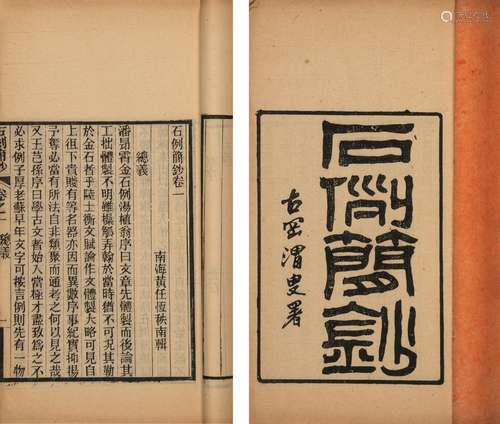 石例簡鈔
古岡渭叟署
石例簡鈔卷一
南海黃任恆秩南輯
總義
潘昂霄金石例湯植翁序曰文章先體製而後論其
工拙體製不明雖操觚弄翰於當時猶不可況其勒
於金石者乎陸士衡文賦論作文體製大略可見自
上徂下貴賤有等名器亦因而異數序事紀實抑揚
予奪必當有所法自非類聚而通考之何以見之哉
又王芑孫序曰學古文者始入當極才盡致為之不
必求例子厚老蘇早年文字可按言例則先有一物
石例簡鈔 卷之一 總義 一